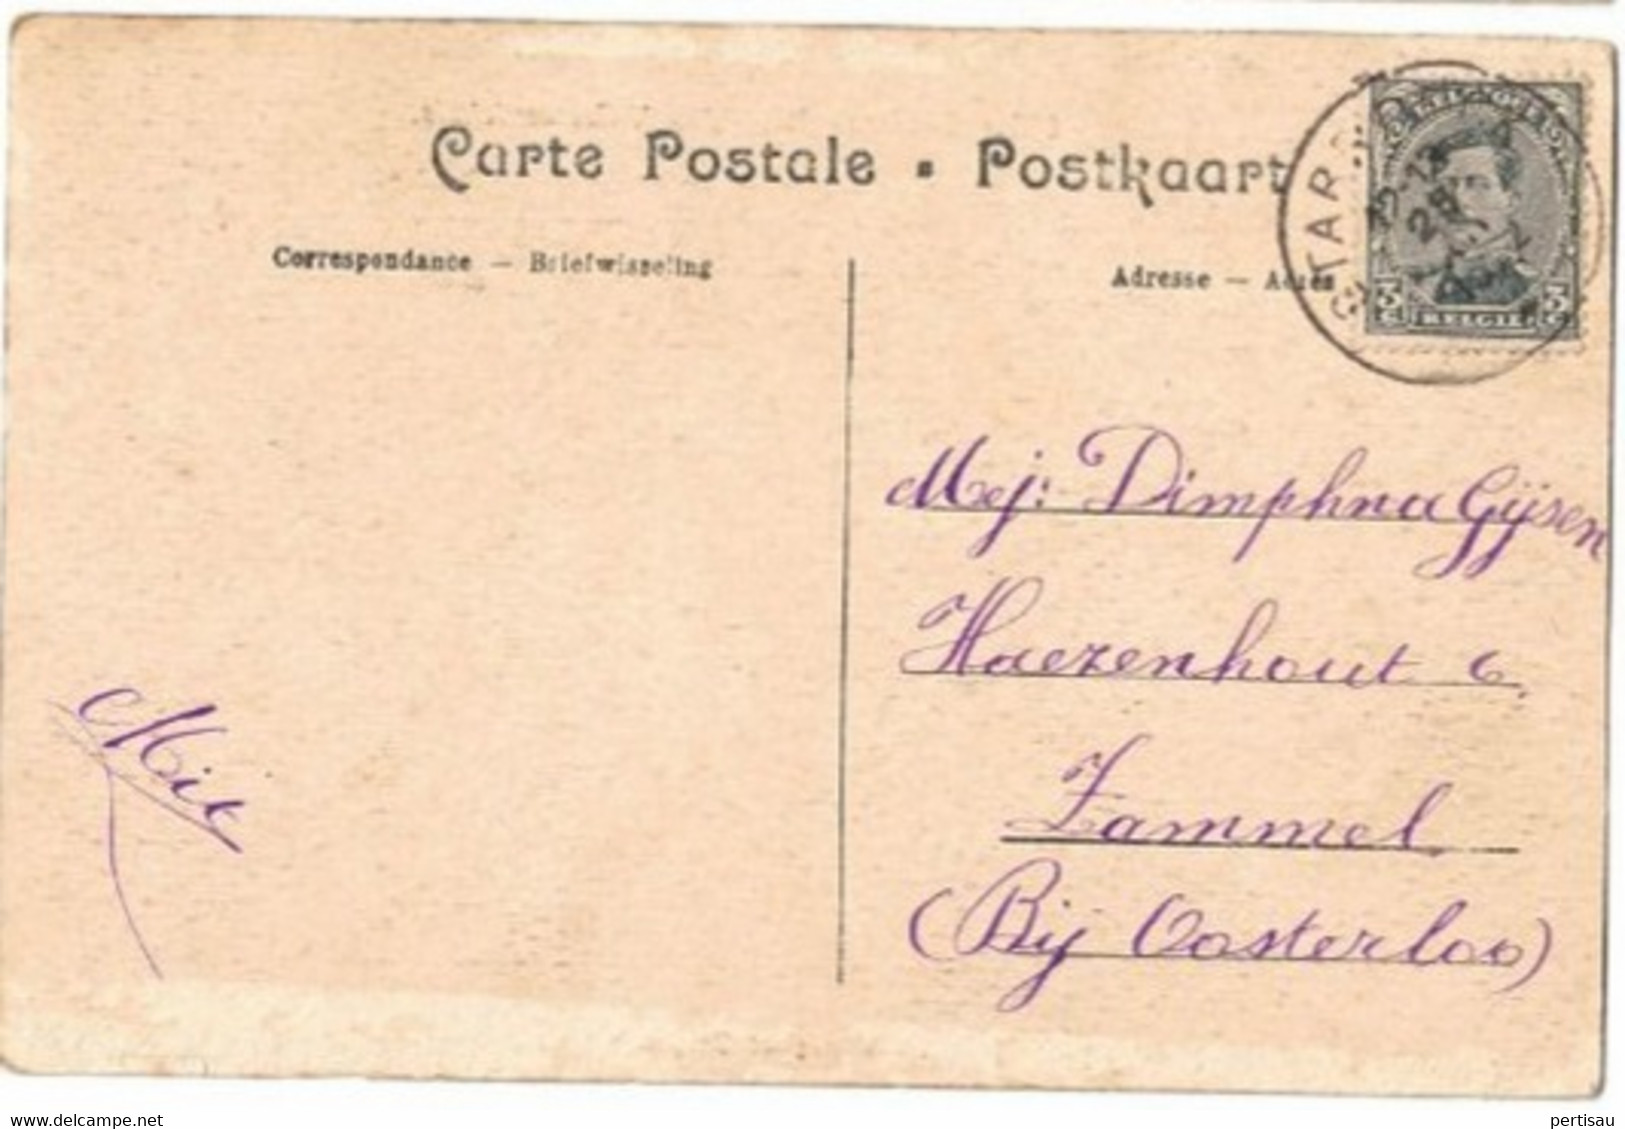 Carte Postale ▪ Postkaart
Correspondance — Briefwisseling
Adresse — Adres
12-13
3 3
BELGIË
Mej: Dimphna Gijsen
Haezenhout 6,
Zammel
(Bij Oosterloo)
Mit
delcampe.net
pertisau